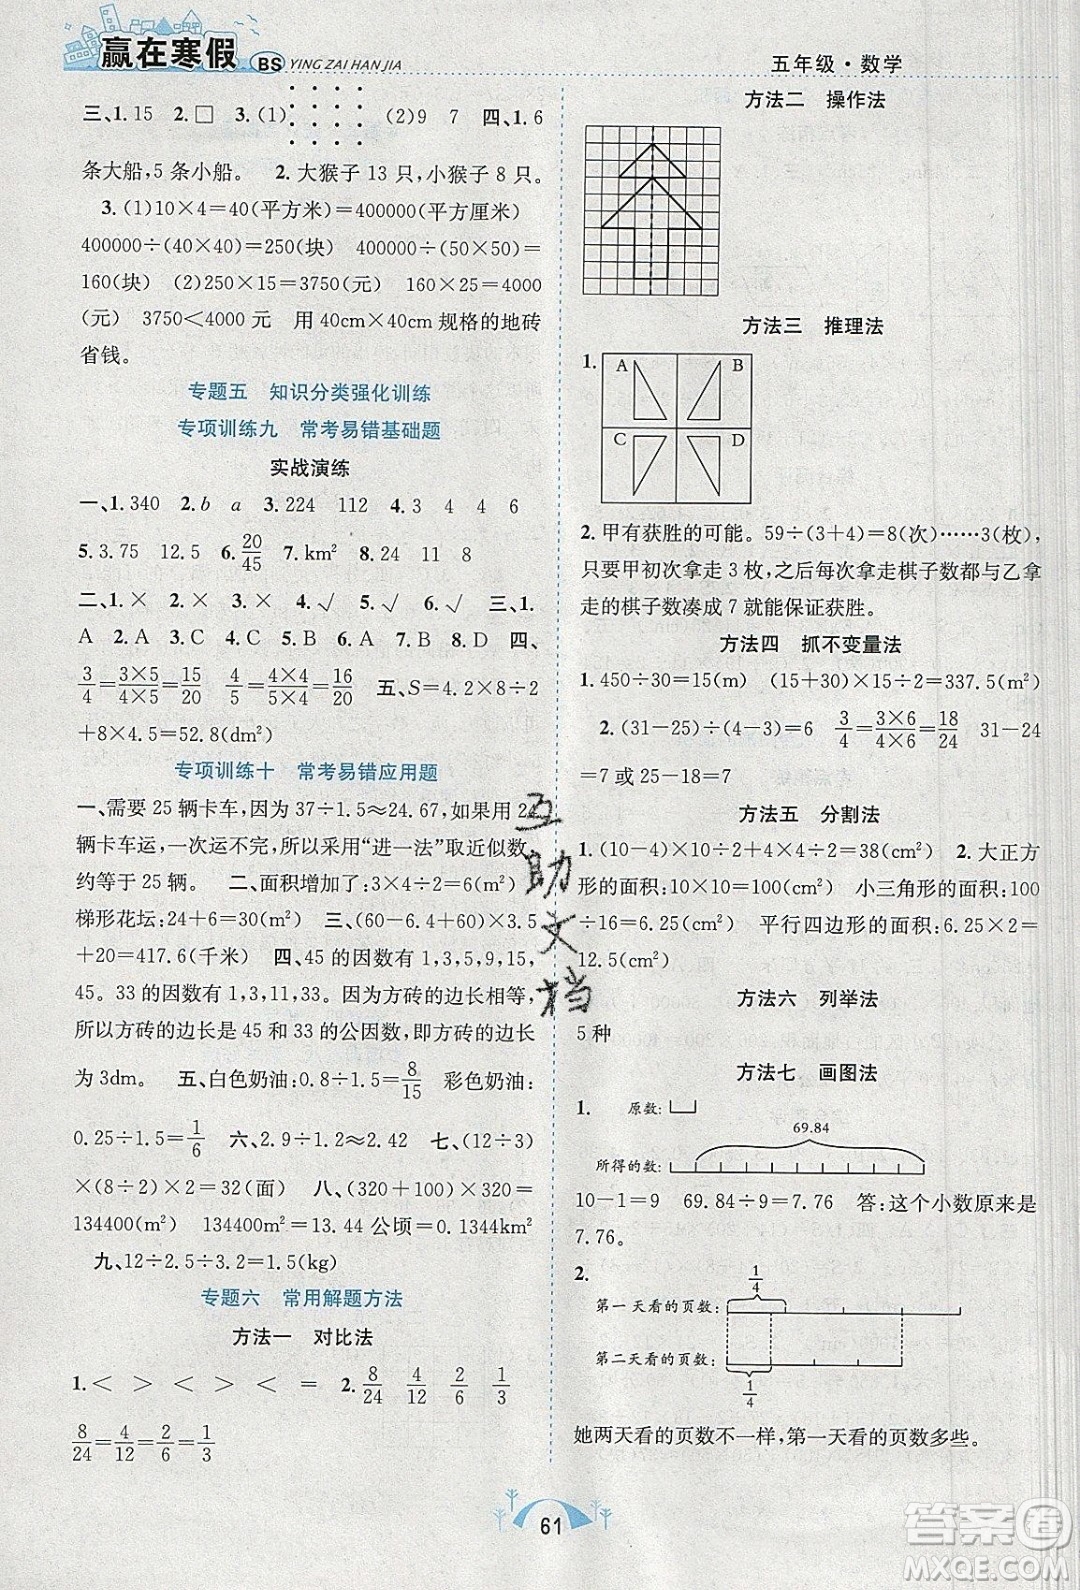 赢在寒假 BS YING ZAI HAN JIA
五年级·数学
三、1.15 2.□ 3.(1) (2)9 7 四、1.6
条大船,5 条小船。 2.大猴子 13 只,小猴子 8 只。
3.(1)10×4=40(平方米)=400000(平方厘米)
400000÷(40×40)=250(块) 400000÷(50×50)=
160(块) (2)250×15=3750(元) 160×25=4000
(元) 3750<4000 元 用 40cm×40cm 规格的地砖
省钱。
专题五 知识分类强化训练
专项训练九 常考易错基础题
实战演练
一、1.340 2.b a 3.224 112 4.3 4 4 6
5.3.75 12.5 6.20/45 7.km² 8.24 11 8
二、1.× 2.× 3.× 4.√ 5.√ 三、1.
A 2.A 3.D 4.A 5.C 6.A 7.B 8.D 四、
3/4=3×5/4×5=15/20 4/5=4×4/5×4=16/20 五、S=4.2×8÷2
+8×4.5=52.8(dm²)
专项训练十 常考易错应用题
一、需要 25 辆卡车,因为 37÷1.5≈24.67,如果用 24
辆卡车运,一次运不完,所以采用“进一法”取近似数,
约等于 25 辆。 二、面积增加了:3×4÷2=6(平方米)
梯形花坛:24+6=30(平方米) 三、(6.4+60)×3.5
+20=417.6(千米) 四、45 的因数有 1,3,5,9,15,
45。33 的因数有 1,3,11,33。因为方砖的边长相等,
所以方砖的边长是 45 和 33 的公因数,即方砖的边长
为 3dm。 五、白色奶油:0.8÷1.5=8/15 彩色奶油:
0.25÷1.5=1/6 六、2.9÷1.2≈2(个) 七、(12÷3)
×(8÷2)×2=32(面) 八、(320+100)×320=
134400(m²) 134400m²=13.44 公顷=0.1344km²
九、12÷2.5÷3.2=1.5(kg)
专题六 常用解题方法
方法一 对比法
1.< > < > < = 2.8/24 4/12 2/6 1/3
8/24=4/12=2/6=1/3
方法二 操作法
方法三 推理法
1.
A B
C D
2.甲有获胜的可能。59÷(3+4)=8(次)……3(枚),
只要甲初次拿走 3 枚,之后每次拿走棋子数都与乙拿
走的棋子数凑成 7 就能保证获胜。
方法四 抓不变量法
1.450÷30=15(m) (15+30)×15÷2=337.5(m²)
2.(31-25)÷(4-3)=6 3/4=3×6/4×6=18/24 31-24
=7 或 25-18=7
方法五 分割法
1.(10-4)×10÷2+4×4÷2=38(cm²) 2.大正方
形的面积:10×10=100(cm²) 小三角形的面积:100
÷16=6.25(cm²) 平行四边形的面积:6.25×2=
12.5(cm²)
方法六 列举法
5 种
方法七 画图法
1.
原数:
69.84
所得的数:
10-1=9 69.84÷9=7.76 答:这个小数原来是
7.76。
2.
1/4
第一天看的页数:
第二天看的页数:
1/4
她两天看的页数不一样,第一天看的页数多些。
互助文档
61
答案圈
MXQE.COM